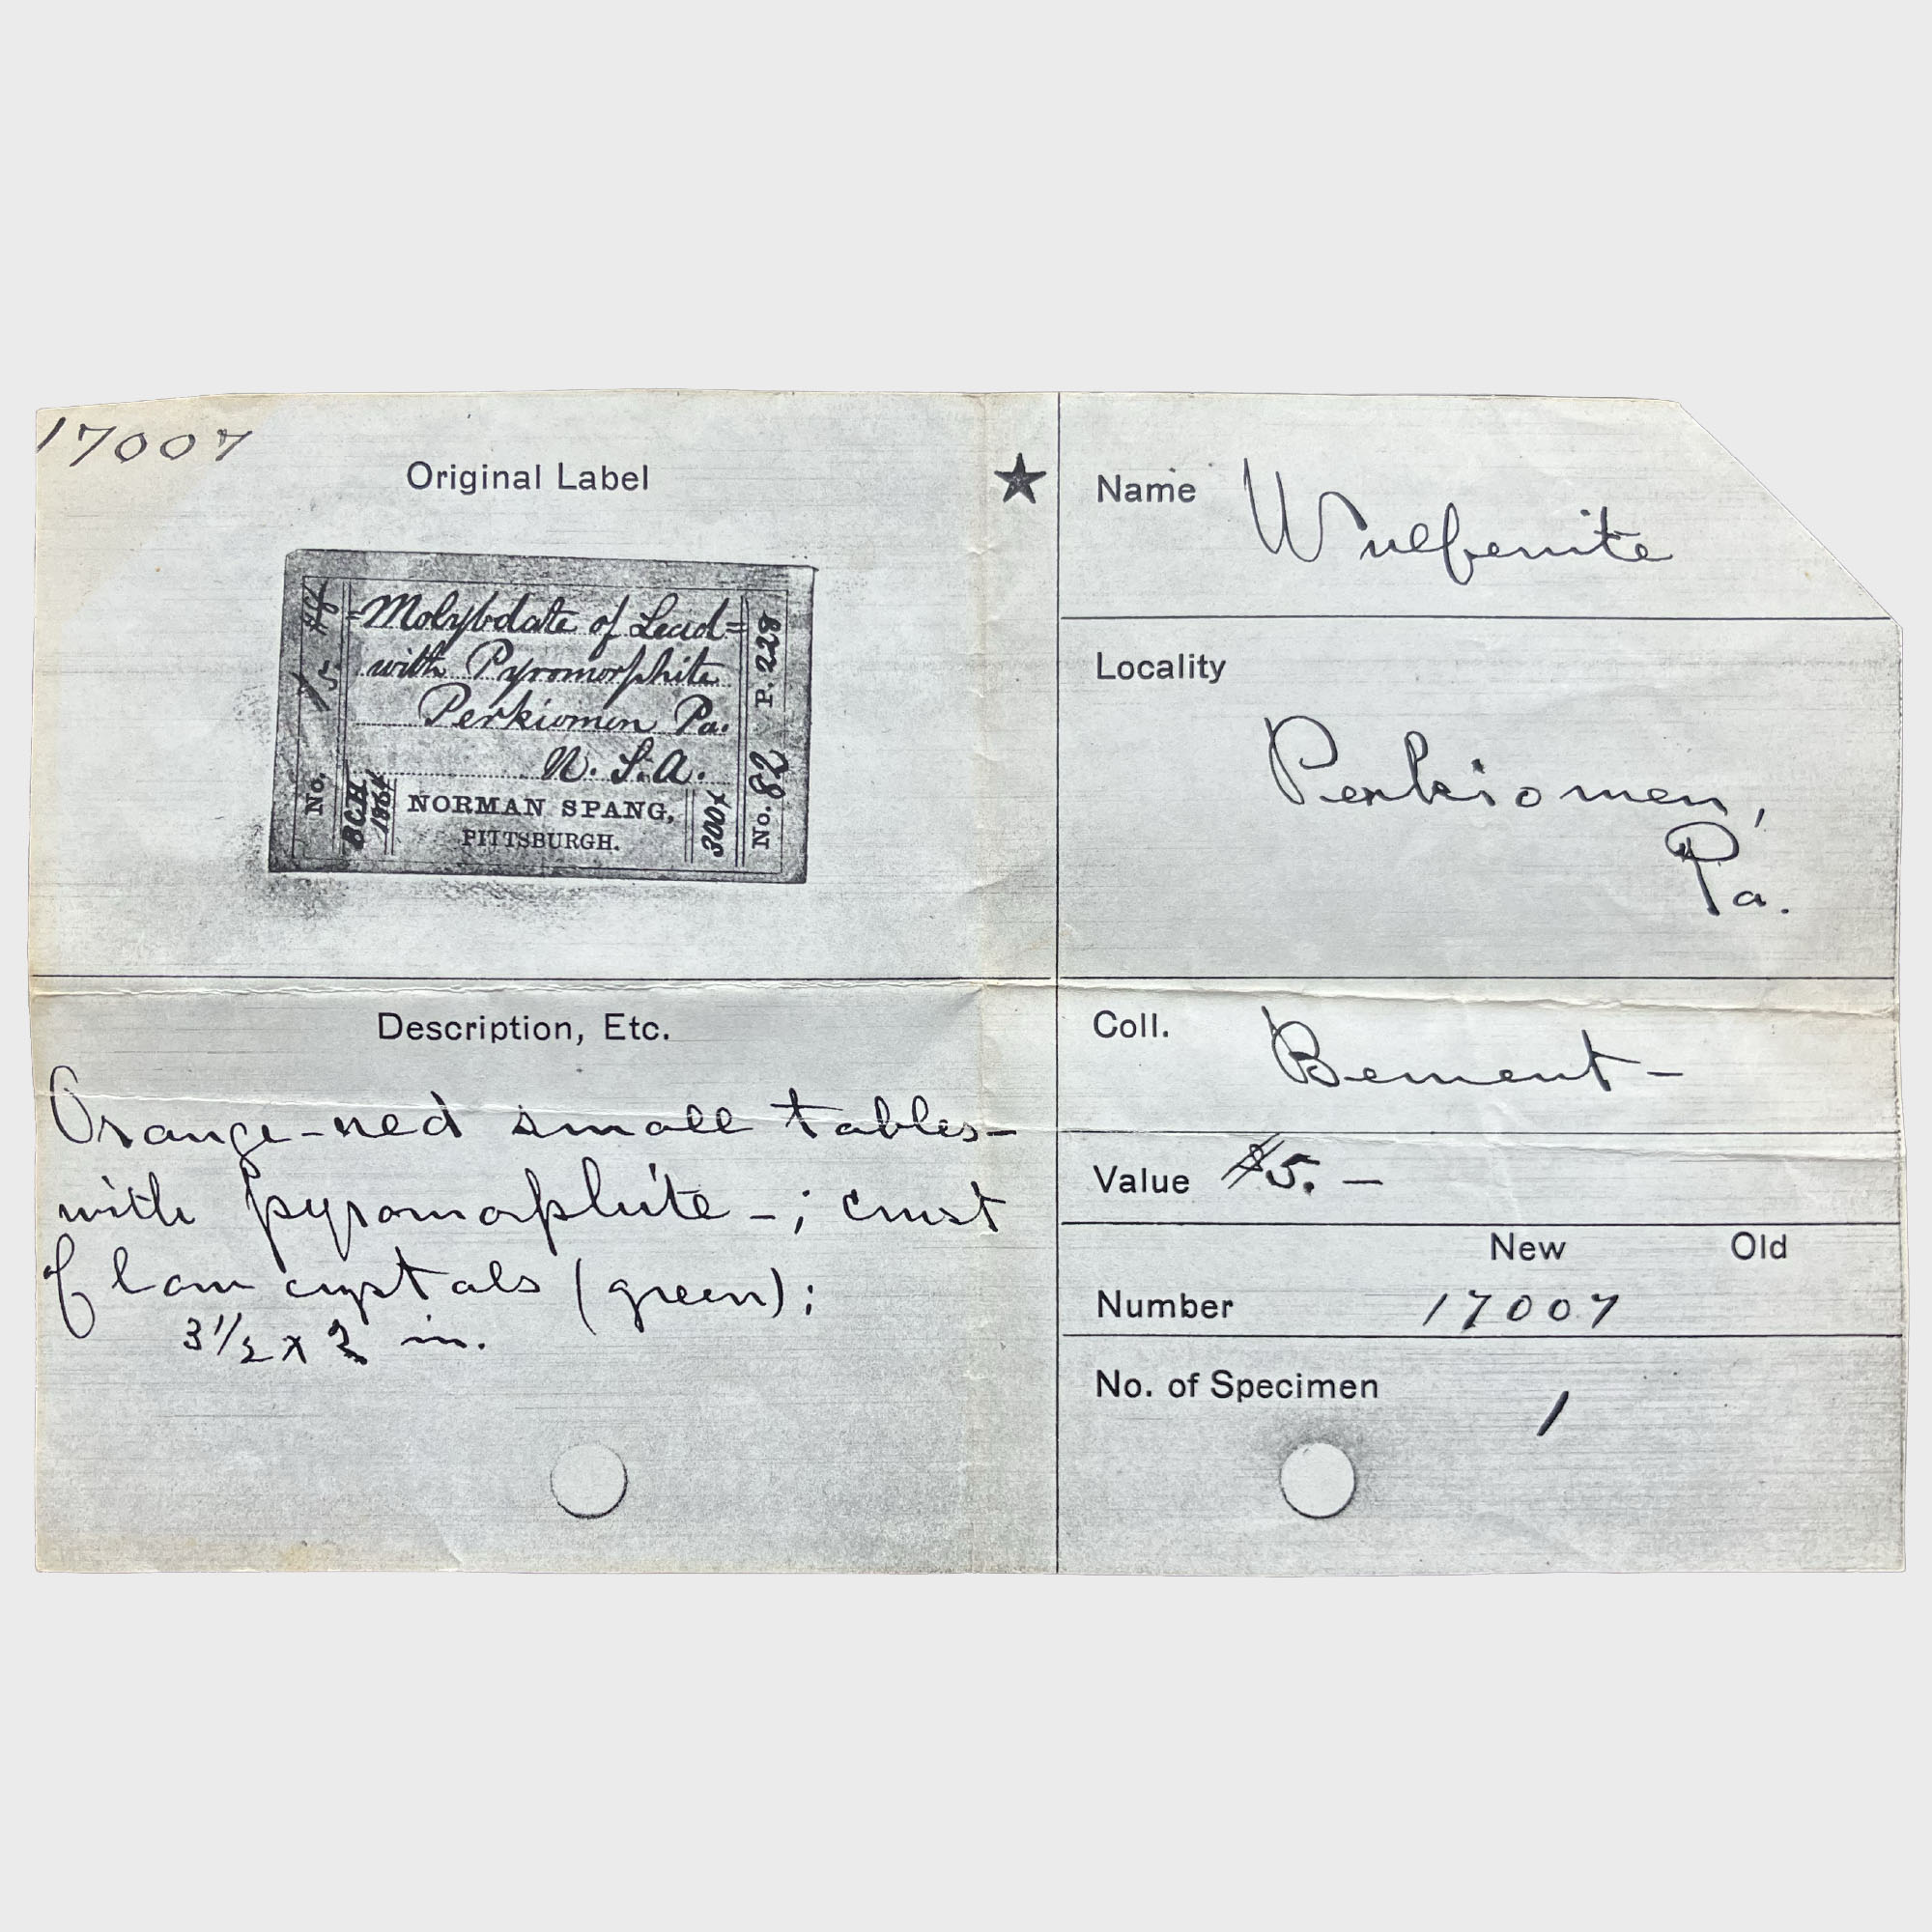 17007
Original Label
=Molybdate of Lead=
with Pyromorphite
Perkiomen Pa.
U. S. A.
NORMAN SPANG,
PITTSBURGH.
No. 5.
BCH
1864
300x
No. 82 P. 228
★
Name Wulfenite
Locality
Perkiomen,
Pa.
Description, Etc.
Orange-red small tables-
with pyromorphite -; crust
of crystals (green);
3 1/2 x 2 in.
Coll. Bement-
Value $5. -
New Old
Number 17007
No. of Specimen 1